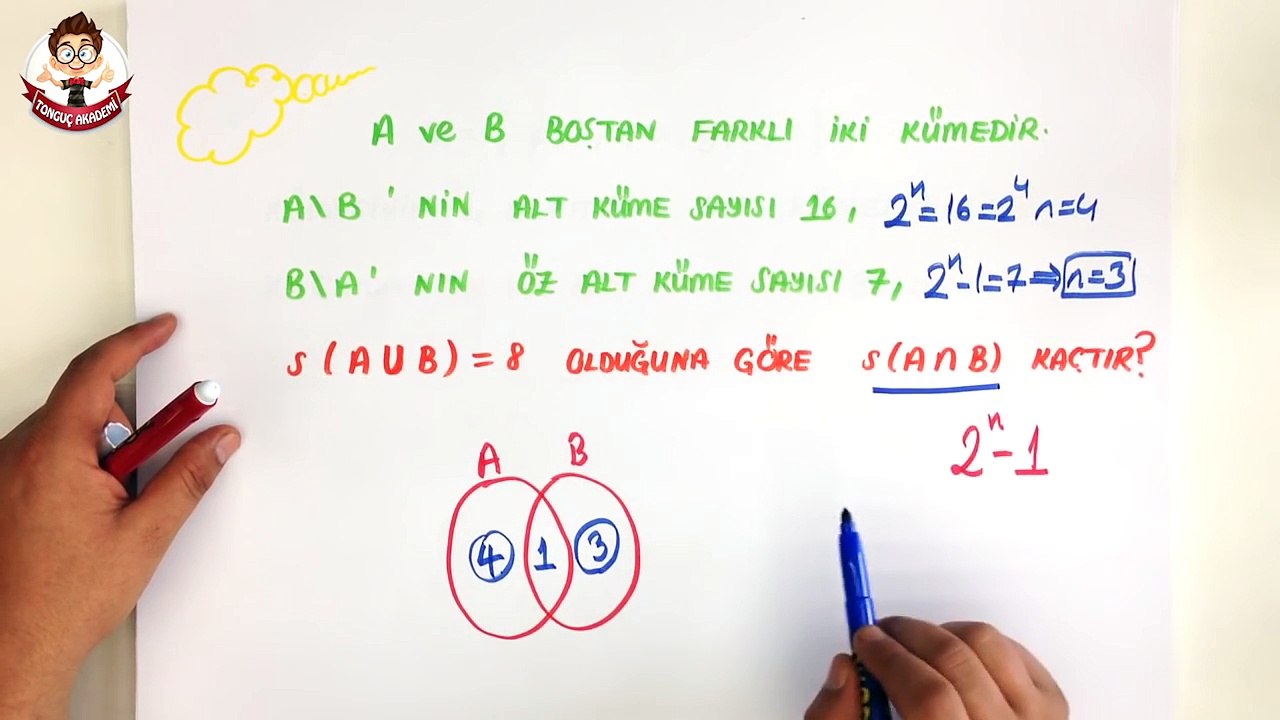 TONGUÇ AKADEMİ
A ve B BOŞTAN FARKLI İKİ KÜMEDİR.
A\B 'NİN ALT KÜME SAYISI 16, 2ⁿ=16=2⁴ n=4
B\A' NIN ÖZ ALT KÜME SAYISI 7, 2ⁿ-1=7⇒ n=3
s(A∪B)=8 OLDUĞUNA GÖRE s(A∩B) KAÇTIR?
2ⁿ-1
A B
4 1 3